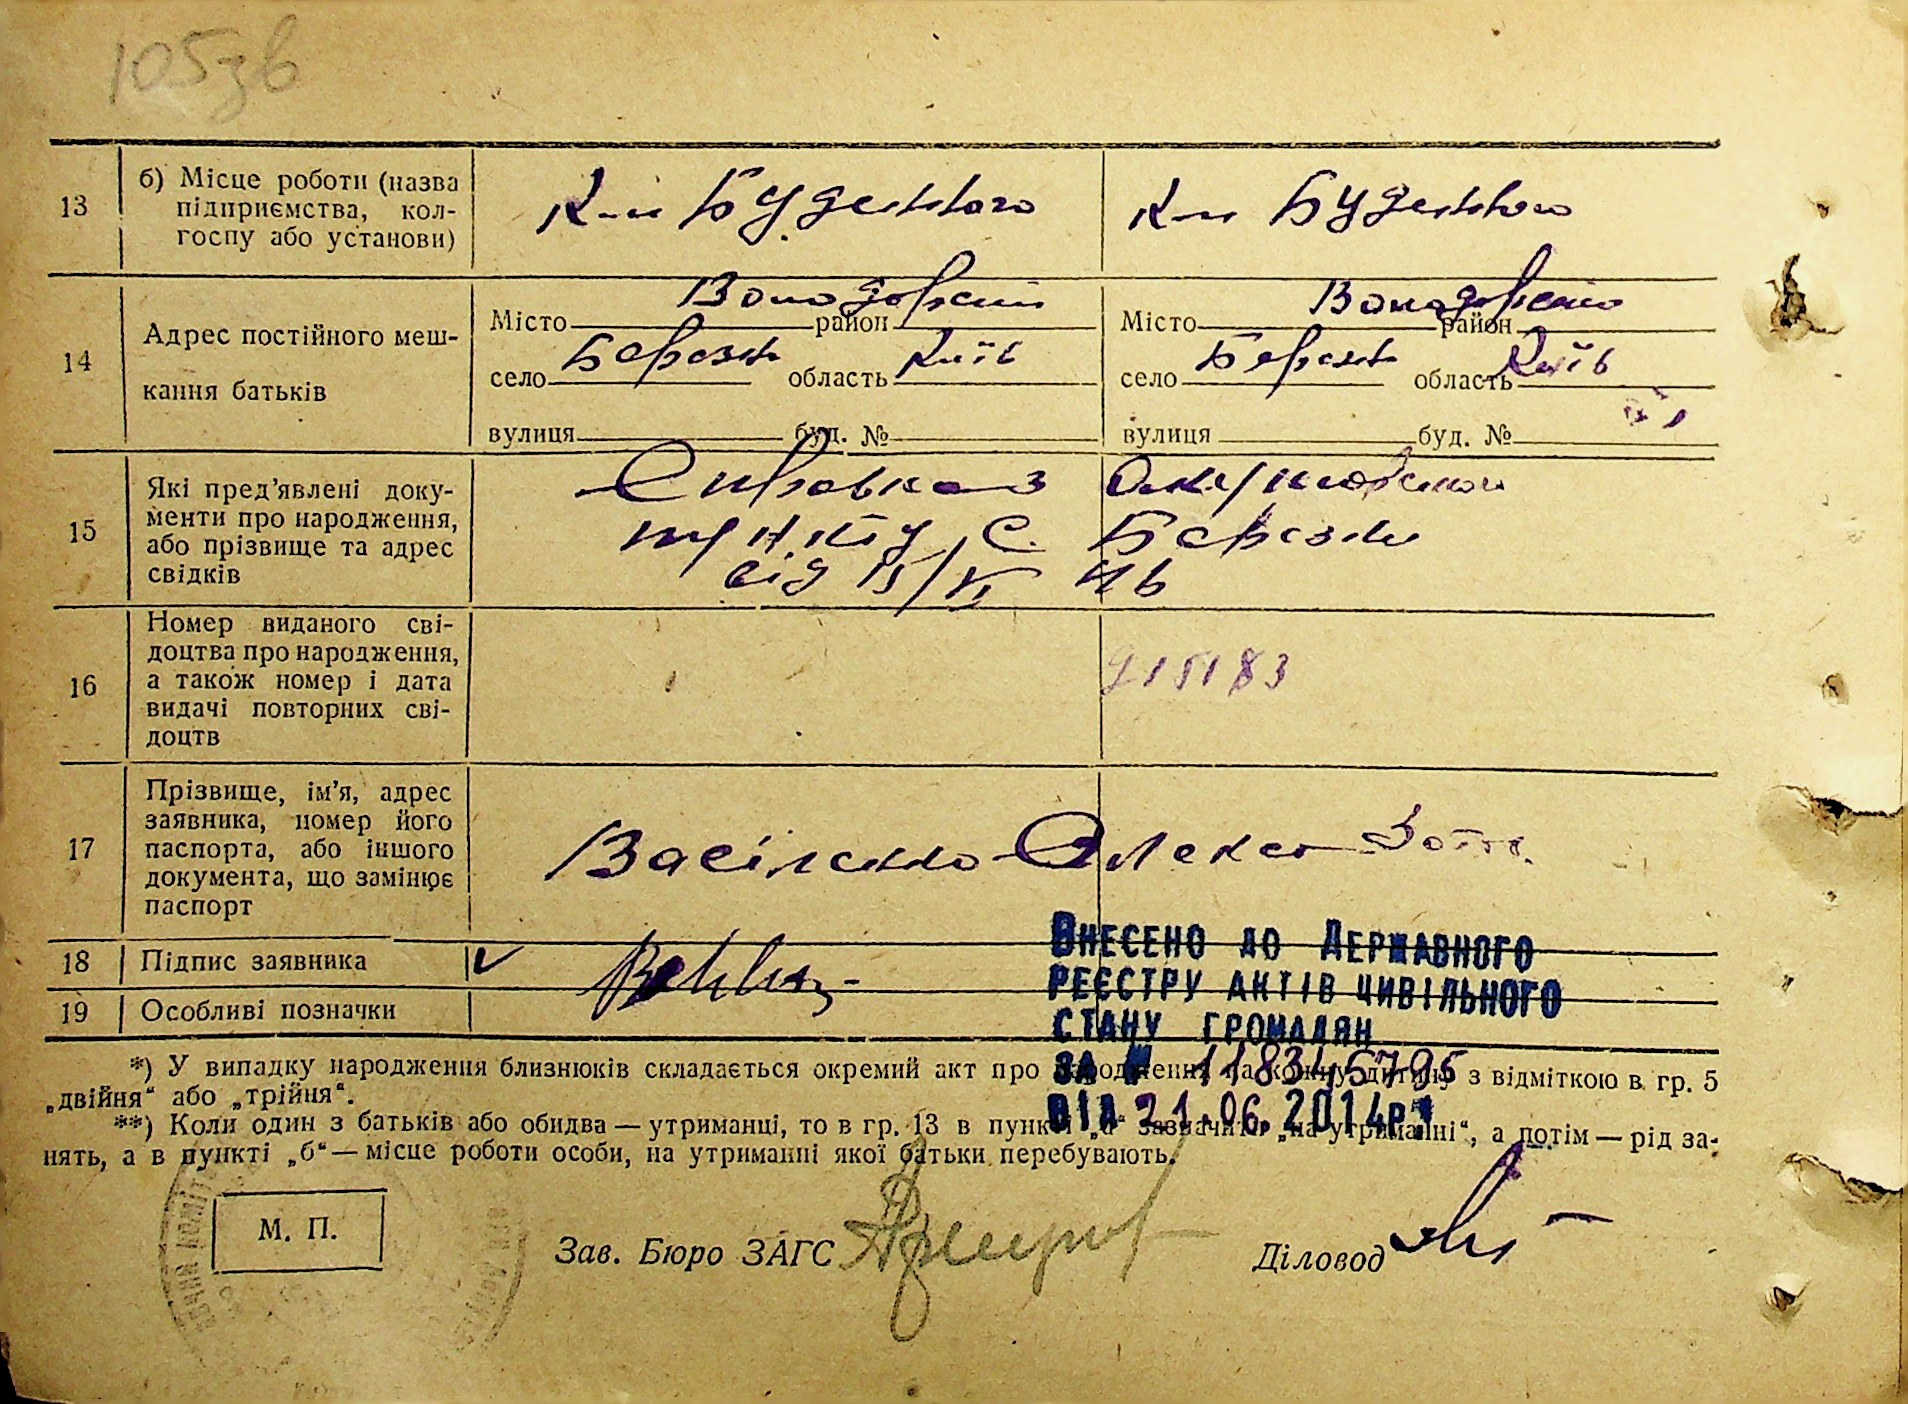 105зв
13 б) Місце роботи (назва підприємства, кол-
госпу або установи)
К-п Буденного К-п Буденного
14 Адрес постійного меш-
кання батьків
Володарський Володарський
Місто район Місто район
село Березна область Київ село Березна область Київ
вулиця буд. № вулиця буд. №
15 Які пред'явлені доку-
менти про народження,
або прізвище та адрес
свідків
Справка з Акушорського
пункту с. Березни
від 15/VI 46
16 Номер виданого сві-
доцтва про народження,
а також номер і дата
видачі повторних сві-
доцтв
915183
17 Прізвище, ім'я, адрес
заявника, номер його
паспорта, або іншого
документа, що замінює
паспорт
Васіленко Олекса Зот.
18 Підпис заявника
19 Особливі позначки
Внесено до Державного
реєстру актів цивільного
стану громадян
за № 1183
від 21.06.2014р.
*) У випадку народження близнюків складається окремий акт про народження на кожну дитину з відміткою в гр. 5
„двійня“ або „трійня“.
**) Коли один з батьків або обидва — утриманці, то в гр. 13 в пункті „а“ зазначити „на утриманні“, а потім — рід за-
нять, а в пункті „б“ — місце роботи особи, на утриманні якої батьки перебувають.
М. П.
Зав. Бюро ЗАГС
Діловод